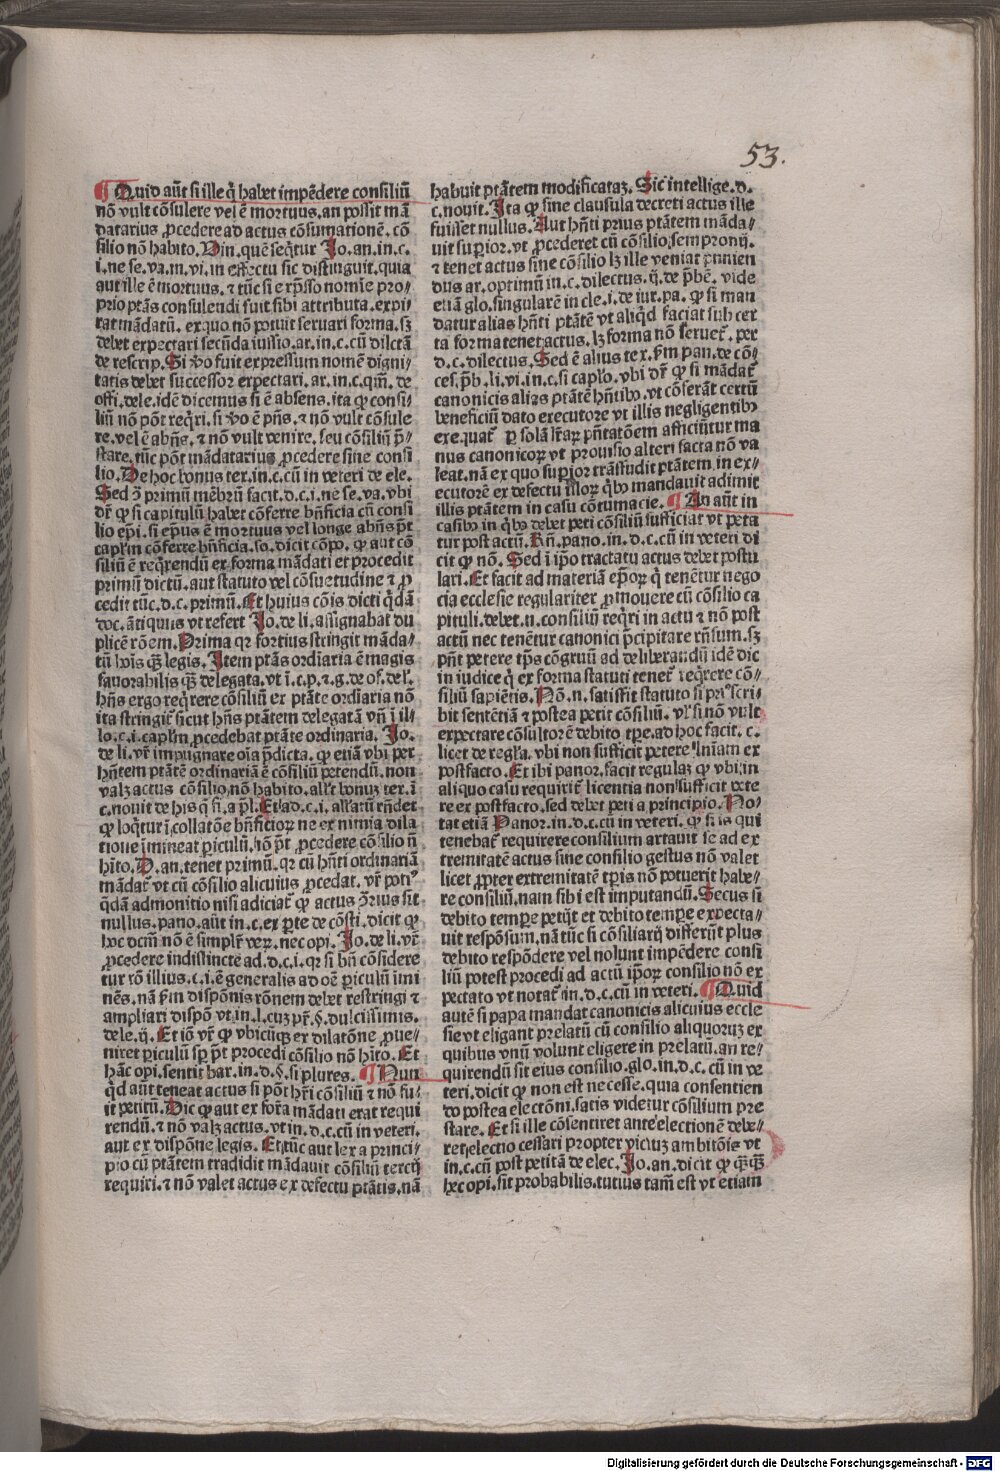 53.
¶ Quid aūt si ille q̄ habet impēdere consiliū
nō vult cōsulere vel ē mortuus. an possit mā
datarius ꝓcedere ad actus cōsumationē. cō
silio nō habito. Din. quē seq̄tur Jo. an. in. c.
i. ne se. va. m. vi. in effectu sic distinguit. quia
aut ille ē mortuus. ⁊ tūc si exp̄sso noīe pro/
prio ptās consulendi fuit sibi attributa. expi/
rat mādatū. ex quo nō potuit seruari forma. sꝫ
debet expectari secūda iussio. ar. in. c. cū dilctā
de rescrip. Si v̓o fuit expressum nomē digni/
tatis debet successor expectari. ar. in. c. qm̄. de
offi. dele. idē dicemus si ē absens. ita ꝙ consi/
liū nō pōt req̄ri. si v̓o ē pn̄s. ⁊ nō vult cōsule
re. vel ē abn̄s. ⁊ nō vult venire. seu cōsiliū p̄/
stare. tūc pōt mādatarius ꝓcedere sine consi
lio. De hoc bonus tex. in. c. cū in veteri de ele.
Sed ꝯ̄ primū mēbrū facit. d. c. i. ne se. va. vbi
dr̄ ꝙ si capitulū habet cōferre bn̄ficia cū consi
lio ep̄i. si ep̄us ē mortuus vel longe abn̄s p̄t
capl'm cōferre bn̄ficia. so. dicit cōpo. ꝙ aut cō
siliū ē req̄rendū ex forma mādati et procedit
primū dictū. aut statuto vel cōsuetudine ⁊ ꝓ
cedit tūc. d. c. primū. Et huius cōis dicti q̄dā
doc. ātiquus vt refert Jo. de li. assignabat du
plicē rōem. Prima qr fortius stringit māda/
tū hoīs qꝫ̄ legis. Item ptās ordīaria ē magis
fauorabilis qꝫ̄ delegata. vt ī. c. p. ⁊. g. de of. de l'.
hn̄s ergo req̄rere cōsiliū ex ptāte ordīaria nō
ita stringit̄ sicut hn̄s ptātem delegatā vn̄ ī il/
lo. c. i. capl'm ꝓcedebat ptāte ordinaria. Jo.
de li. vr̄ impugnare oīa p̄dicta. ꝙ etiā vbi per
hn̄tem ptātē ordinariā ē cōsiliū petendū. non
valꝫ actus cōsilio nō habito. all'r bonuꝫ tex. ī
c. nouit de his q̄ fi. a p̄l. Et ad. c. i. all'atū rn̄det
ꝙ loq̄tur ī collatōe bn̄ficioꝝ ne ex nimia dila
tione īmineat ꝑiculū. iō p̄t ꝓcedere cōsilio n̄
hīto. D. an. tenet primū. qr cū hn̄ti ordinariā
mādat̄ vt cū cōsilio alicuius ꝓcedat. vr̄ poti⁹
q̄dā admonitio nisi adiciat̄ ꝙ actus ꝯ̄rius sit
nullus. pano. aūt in. c. ex ꝑte de cōsti. dicit ꝙ
hoc dcm̄ nō ē simpl'r veꝝ. nec opi. Jo. de li. vr̄
ꝓcedere indistincte ad. d. c. i. qr si bn̄ cōsidere
tur rō illius. c. i. ē generalis ad oē ꝑiculū imi
nēs. nā fm̄ dispōnis rōnem debet restringi ⁊
ampliari dispō vt in. l. cuꝫ pr̄. §. dulcissimis.
de le. ij. Et iō vr̄ ꝙ vbicūqꝫ ex dilatōne ꝓue/
niret ꝑiculū sꝑ p̄t procedi cōsilio nō hīto. Et
hāc opi. sentit bar. in. d. §. si plures. ¶ Nun
q̄d aūt teneat actus si pōt hr̄i cōsiliū ⁊ nō fu/
it petitū. Dic ꝙ aut ex forīa mādati erat requi
rendū. ⁊ nō valꝫ actus. vt in. d. c. cū in veteri.
aut ex dispōne legis. Et tūc aut lex a princi/
pio cū ptātem tradidit mādauit cōsiliū tercij
requiri. ⁊ nō valet actus ex defectu ptātis. nā
habuit ptātem modificataꝫ. Sic intellige. d.
c. nouit. Ita ꝙ sine clausula decreti actus ille
fuisset nullus. Aut hn̄ti prius ptātem māda/
uit suꝑior. vt ꝓcederet cū cōsilio sempronij.
⁊ tenet actus sine cōsilio lꝫ ille veniat punien
dus ar. optimū in. c. dilectus. ij. de p̄bē. vide
etiā glo. singularē in cle. i. de iur. pa. ꝙ si man
datur alias hn̄ti ptātē vt aliq̄d faciat sub cer
ta forma tenet actus. lꝫ forma nō seruet̄. per
d. c. dilectus. Sed ē alius tex. fm̄ pan. de cō/
ces. p̄b. li. vi. in. c. si capl'o. vbi dr̄ ꝙ si mādat̄
canonicis alias ptātē hn̄tibꝰ vt cōferāt certū
beneficiū dato executore vt illis negligentibꝰ
exequat̄ ꝑ solā lr̄aꝝ pn̄tatōem afficiūtur ma
nus canonicoꝝ vt prouisio alteri facta nō va
leat. nā ex quo suꝑior trāsfudit ptātem in ex/
ecutorē ex defectu illoꝝ q̄bꝰ mandauit adimit
illis ptātem in casu cōtumacie. ¶ An aūt in
casibꝰ in q̄bꝰ debet peti cōsiliū sufficiat vt peta
tur post actū. Rn̄. pano. in. d. c. cū in veteri di
cit ꝙ nō. Sed ī ip̄o tractatu actus debet postu
lari. Et facit ad materiā ep̄oꝝ q̄ tenētur nego
cia ecclesie regulariter ꝓmouere cū cōsilio ca
pituli. debet. n. consiliū req̄ri in actu ⁊ nō post
actū nec tenētur canonici p̄cipitare rn̄sum. sꝫ
pn̄t petere tp̄s cōgruū ad deliberandū idē dic
in iudice q̄ ex forma statuti tenet̄ req̄rere cō/
siliū sapiētis. Nō. n. satisfit statuto si pri⁹ scri/
bit sentētiā ⁊ postea petit cōsiliū. vl' si nō vult
expectare cōsultorē debito tꝑe. ad hoc facit. c.
licet de regl'a. vbi non sufficit petere l'niam ex
postfacto. Et ibi panor. facit regulaꝫ ꝙ vbi in
aliquo casu requirit̄ licentia non sufficit pete
re ex postfacto. sed debet peti a principio. No/
tat etiā Panor. in. d. c. cū in veteri. ꝙ si is qui
tenebat̄ requirere consilium artauit se ad ex
tremitatē actus sine consilio gestus nō valet
licet ꝓpter extremitatē tꝑis nō potuerit habe/
re consiliū. nam sibi est imputandū. Secus si
debito tempꝑe petijt et debito tempꝑe expecta/
uit respōsum. nā tūc si cōsiliarij differūt plus
debito respōdere vel nolunt impēdere consi
liū potest procedi ad actū ip̄oꝝ consilio nō ex
pectato vt notat̄ in. d. c. cū in veteri. ¶ Quid
autē si papa mandat canonicis alicuius eccle
sie vt eligant prelatū cū consilio aliquoruꝫ ex
quibus vnū volunt eligere in prelatū. an re/
quirendū sit eius consilio. glo. in. d. c. cū in ve
teri. dicit ꝙ non est necesse. quia consentien
do postea electōni. satis videtur cōsilium pre
stare. Et si ille cōsentiret ante electionē debe/
ret electio cessari propter viciuꝫ ambitōis vt
in. c. cū post petitā de elec. Jo. an. dicit ꝙ qꝫ̄qꝫ̄
hec opi. sit probabilis. tutius tam̄ est vt etiam
Digitalisierung gefördert durch die Deutsche Forschungsgemeinschaft - DFG